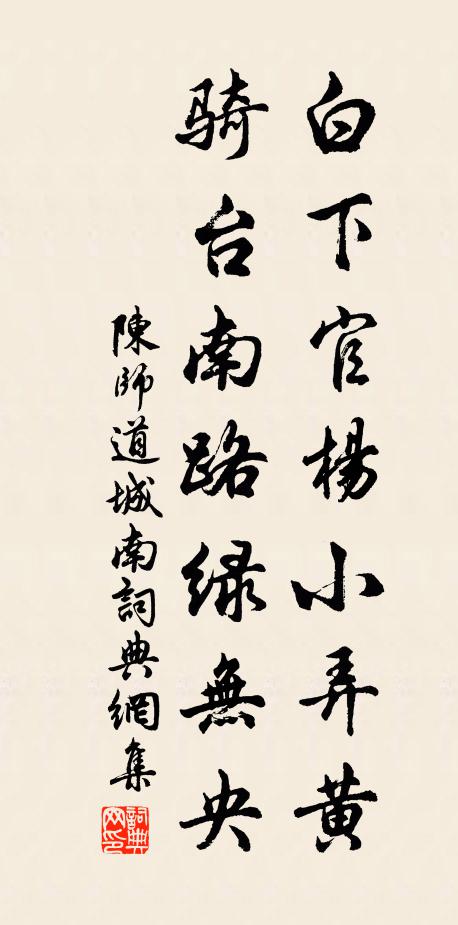 白下官楊小弄黄
騎台南路绿無央
陳師道城南詞典網集
詞典网印